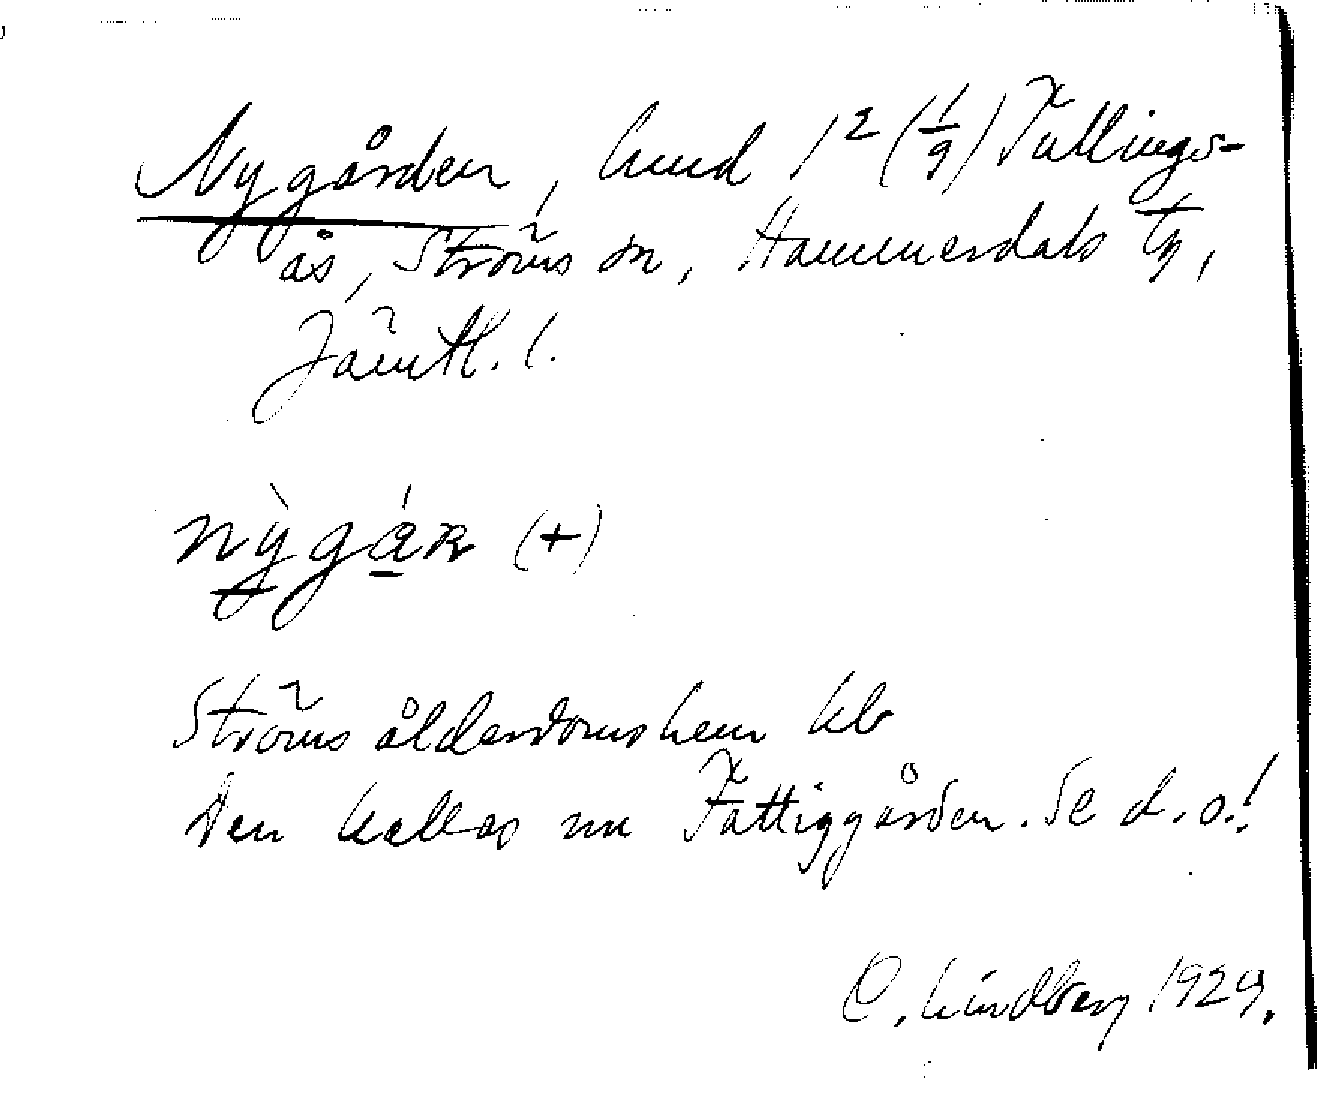 Nygården, hmd 1² (1/9) Tullings-
ås, Ströms sn, Hammerdals tg,
Jämtl. l.
nỳgáɹ (+)
Ströms ålderdomshem kb
Den kallas nu Fattiggården. Se d.o.!
C. Lindberg 1929.